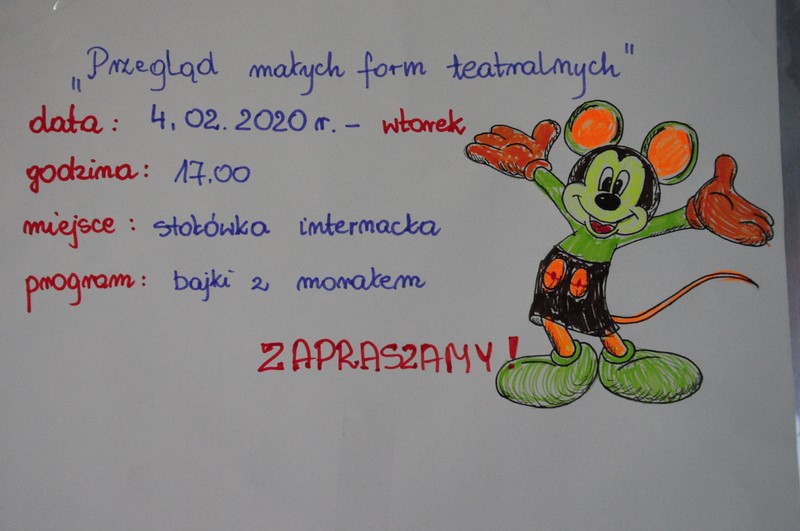 „Przegląd małych form teatralnych"
data: 4.02.2020 r. - wtorek
godzina: 17.00
miejsce: stołówka internacka
program: bajki z morałem
ZAPRASZAMY!